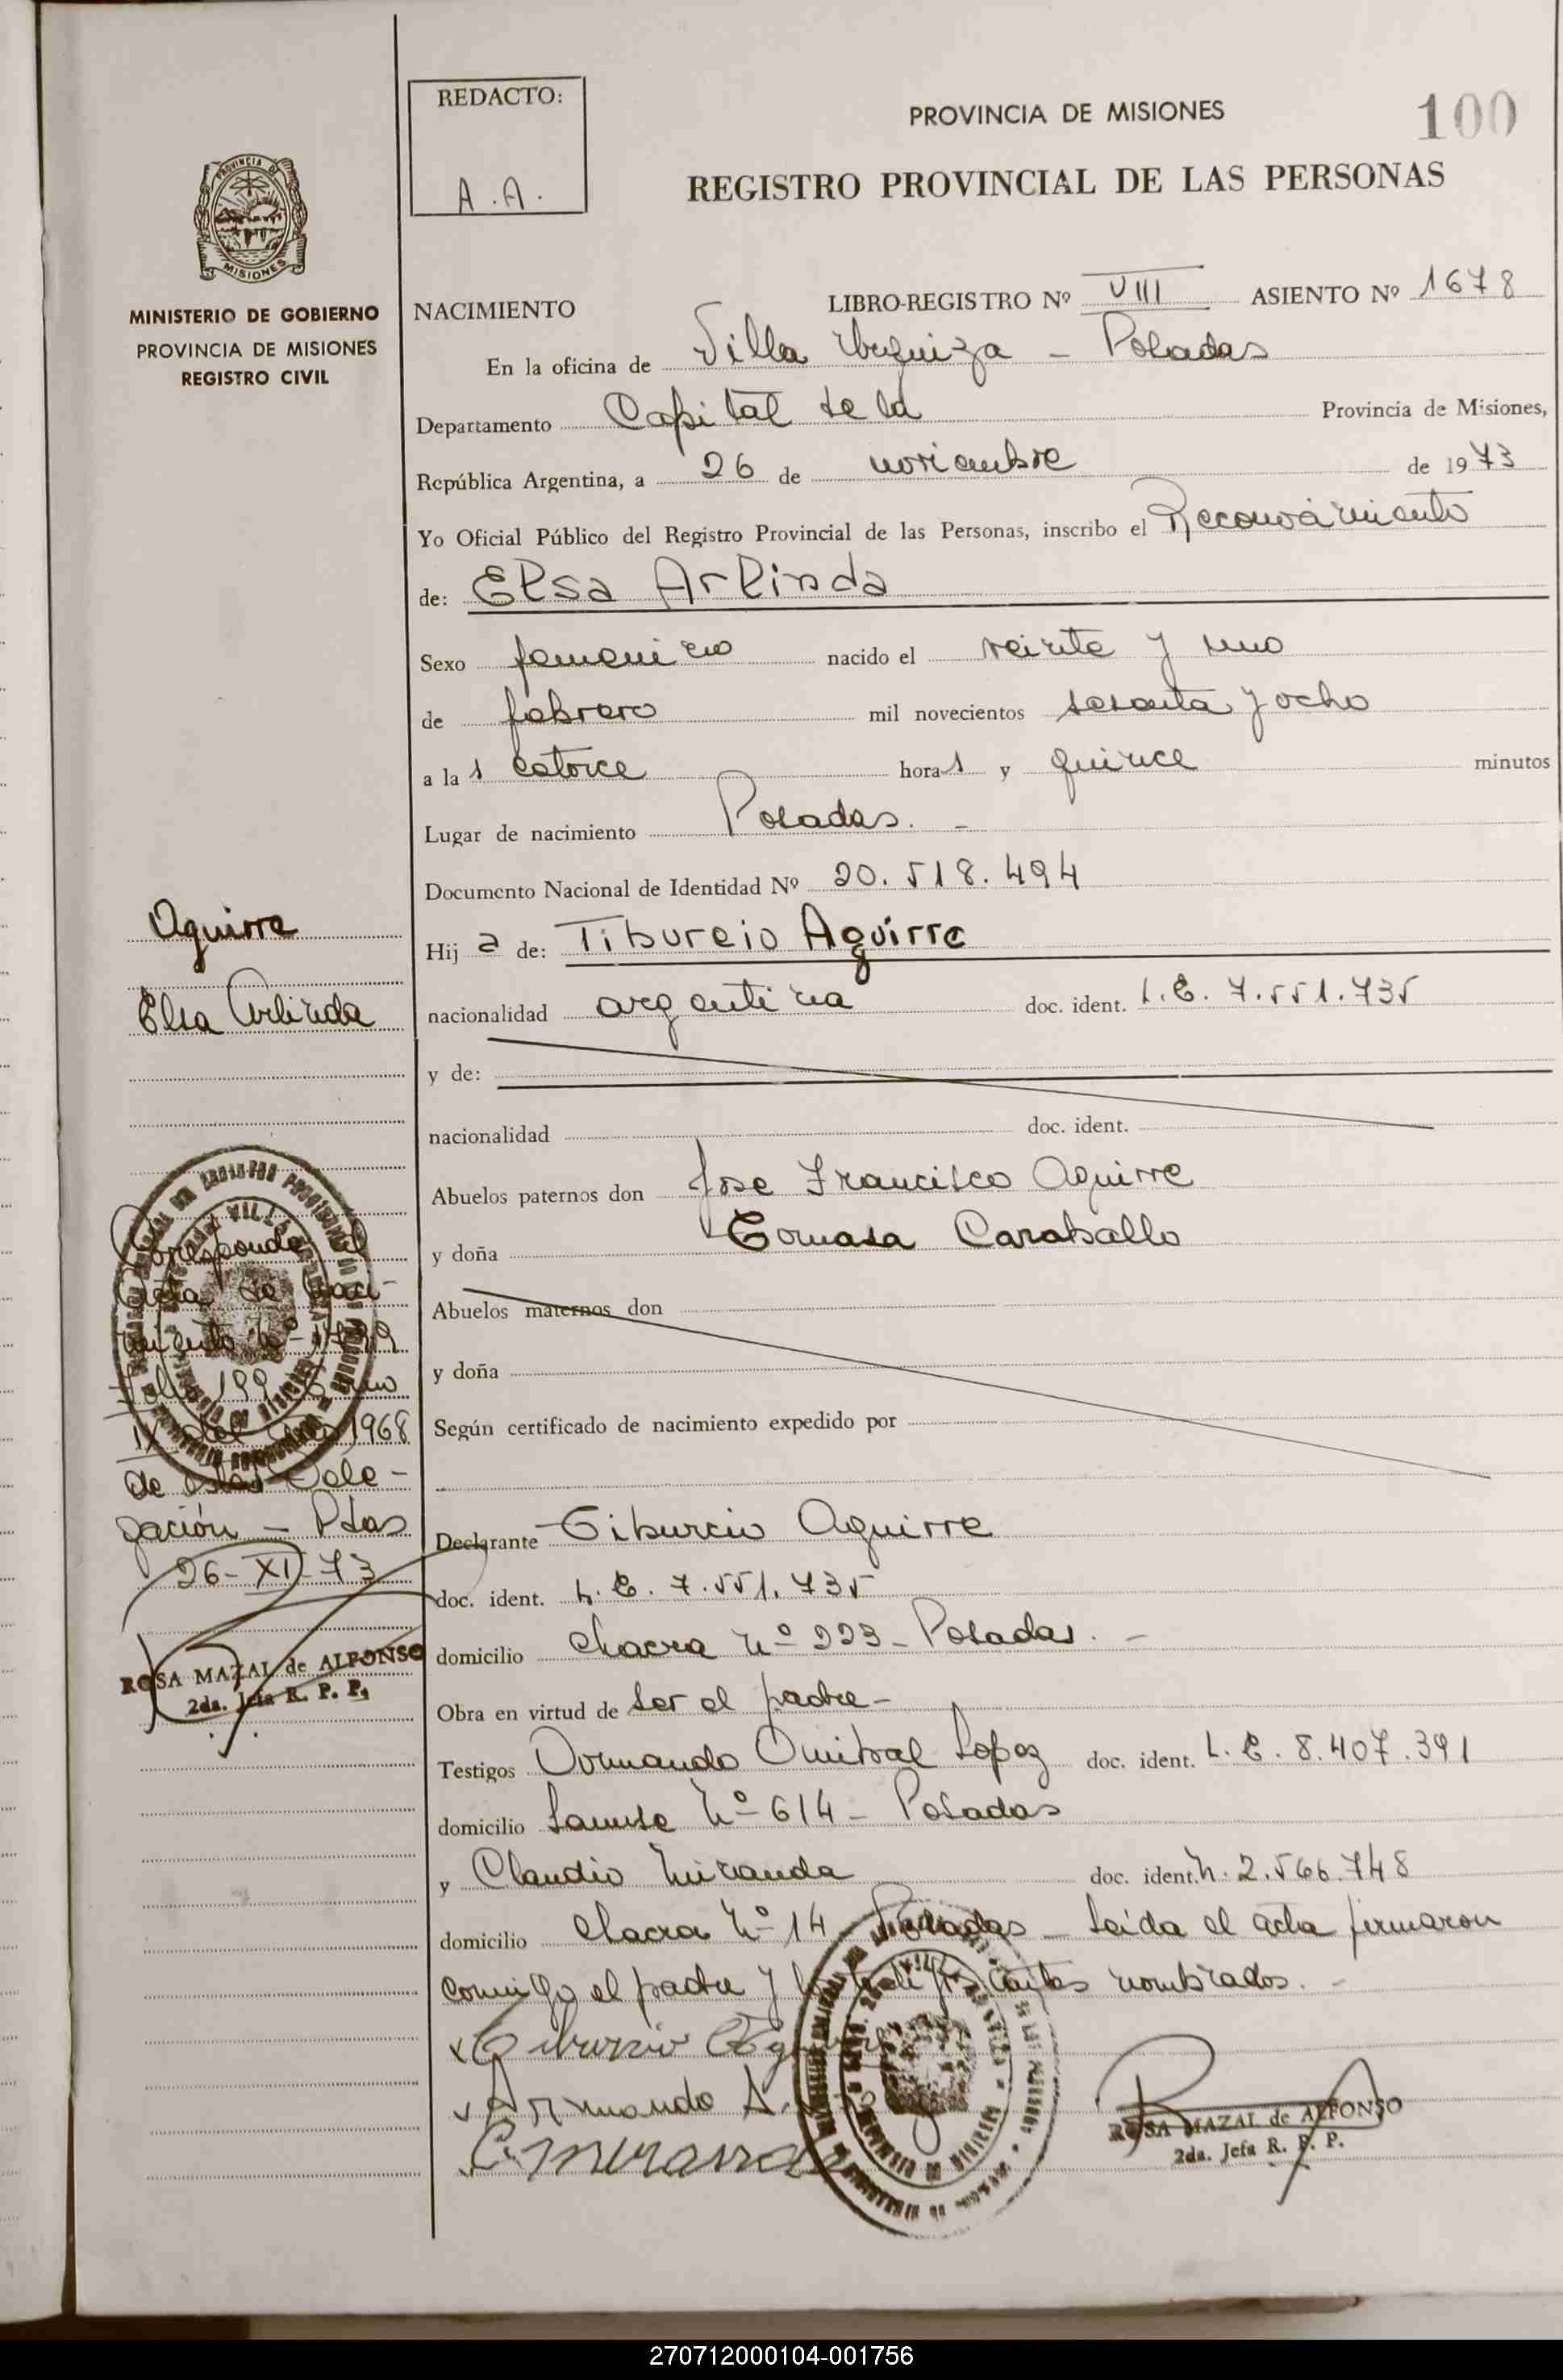 REDACTO:
A.A.
PROVINCIA DE MISIONES
100
REGISTRO PROVINCIAL DE LAS PERSONAS
MISIONES
MINISTERIO DE GOBIERNO
PROVINCIA DE MISIONES
REGISTRO CIVIL
NACIMIENTO LIBRO-REGISTRO Nº VIII ASIENTO Nº 1678
En la oficina de Villa Urquiza - Posadas
Departamento Capital de la Provincia de Misiones,
República Argentina, a 26 de noviembre de 1973
Yo Oficial Público del Registro Provincial de las Personas, inscribo el Reconocimiento
de: Elsa Arlinda
Sexo femenino nacido el veinte y uno
de febrero mil novecientos sesenta y ocho
a las catorce horas y quince minutos
Lugar de nacimiento Posadas. -
Documento Nacional de Identidad Nº 20.518.494
Hija de: Tiburcio Aguirre
nacionalidad argentina doc. ident. L.E. 7.551.735
y de:
nacionalidad doc. ident.
Abuelos paternos don Jose Francisco Aguirre
y doña Tomasa Caraballo
Abuelos maternos don
y doña
Según certificado de nacimiento expedido por
Declarante Tiburcio Aguirre
doc. ident. L.E. 7.551.735
domicilio Chacra Nº 223 - Posadas. -
Obra en virtud de ser el padre -
Testigos Armando Anibal Lopez doc. ident. L.E. 8.407.391
domicilio Nº 614 - Posadas
y Claudio Miranda doc. ident. M. 2.566.748
domicilio Chacra Nº 14 Posadas - Leida el acta firmaron
conmigo el padre y los nombrados. -
Tiburcio Aguirre
Armando A.
C. Miranda
ROSA MAZAL de ALFONSO
2da. Jefa R. P. P.
Aguirre
Elsa Arlinda
Corresponde al
Acta de Naci-
miento Nº
Folio 199
del año 1968
de esta Dele-
gación - Pdas
26-XI-73
ROSA MAZAL de ALFONSO
2da. Jefa R. P. P.
270712000104-001756